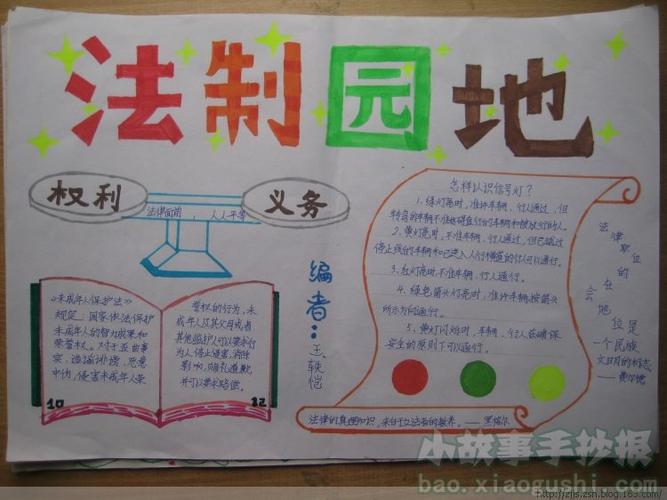 法制园地
权利
义务
法律面前，人人平等
编者：王轶恺
《未成年人保护法》
规定，国家依法保护
未成年人的智力成果和
荣誉权。对于歪曲事
实、造谣诽谤、恶意
中伤，侵害未成年人荣
誉权的行为，未
成年人及其父母或者
其他监护人可以要求行
为人停止侵害，消除
影响，赔礼道歉，
并可以要求赔偿。
10
12
怎样认识信号灯？
1、绿灯亮时，准许车辆、行人通过，但
转弯的车辆不准妨碍直行的车辆和被放行的行人。
2、黄灯亮时，不准车辆、行人通过，但已越过
停止线的车辆和已进入人行横道的行人可以通行。
3、红灯亮时，不准车辆、行人通行。
4、绿色箭头灯亮时，准许车辆按箭头
所示方向通行。
5、黄灯闪烁时，车辆、行人在确保
安全的原则下可以通行。
法律的真理知识，来自于立法者的教养。——黑格尔
法律职位的
在社会
地位是
一个民族
文明的标志。
——费尔德
小故事手抄报
bao.xiaogushi.com
http://zjls.zsn.blog.163.com/